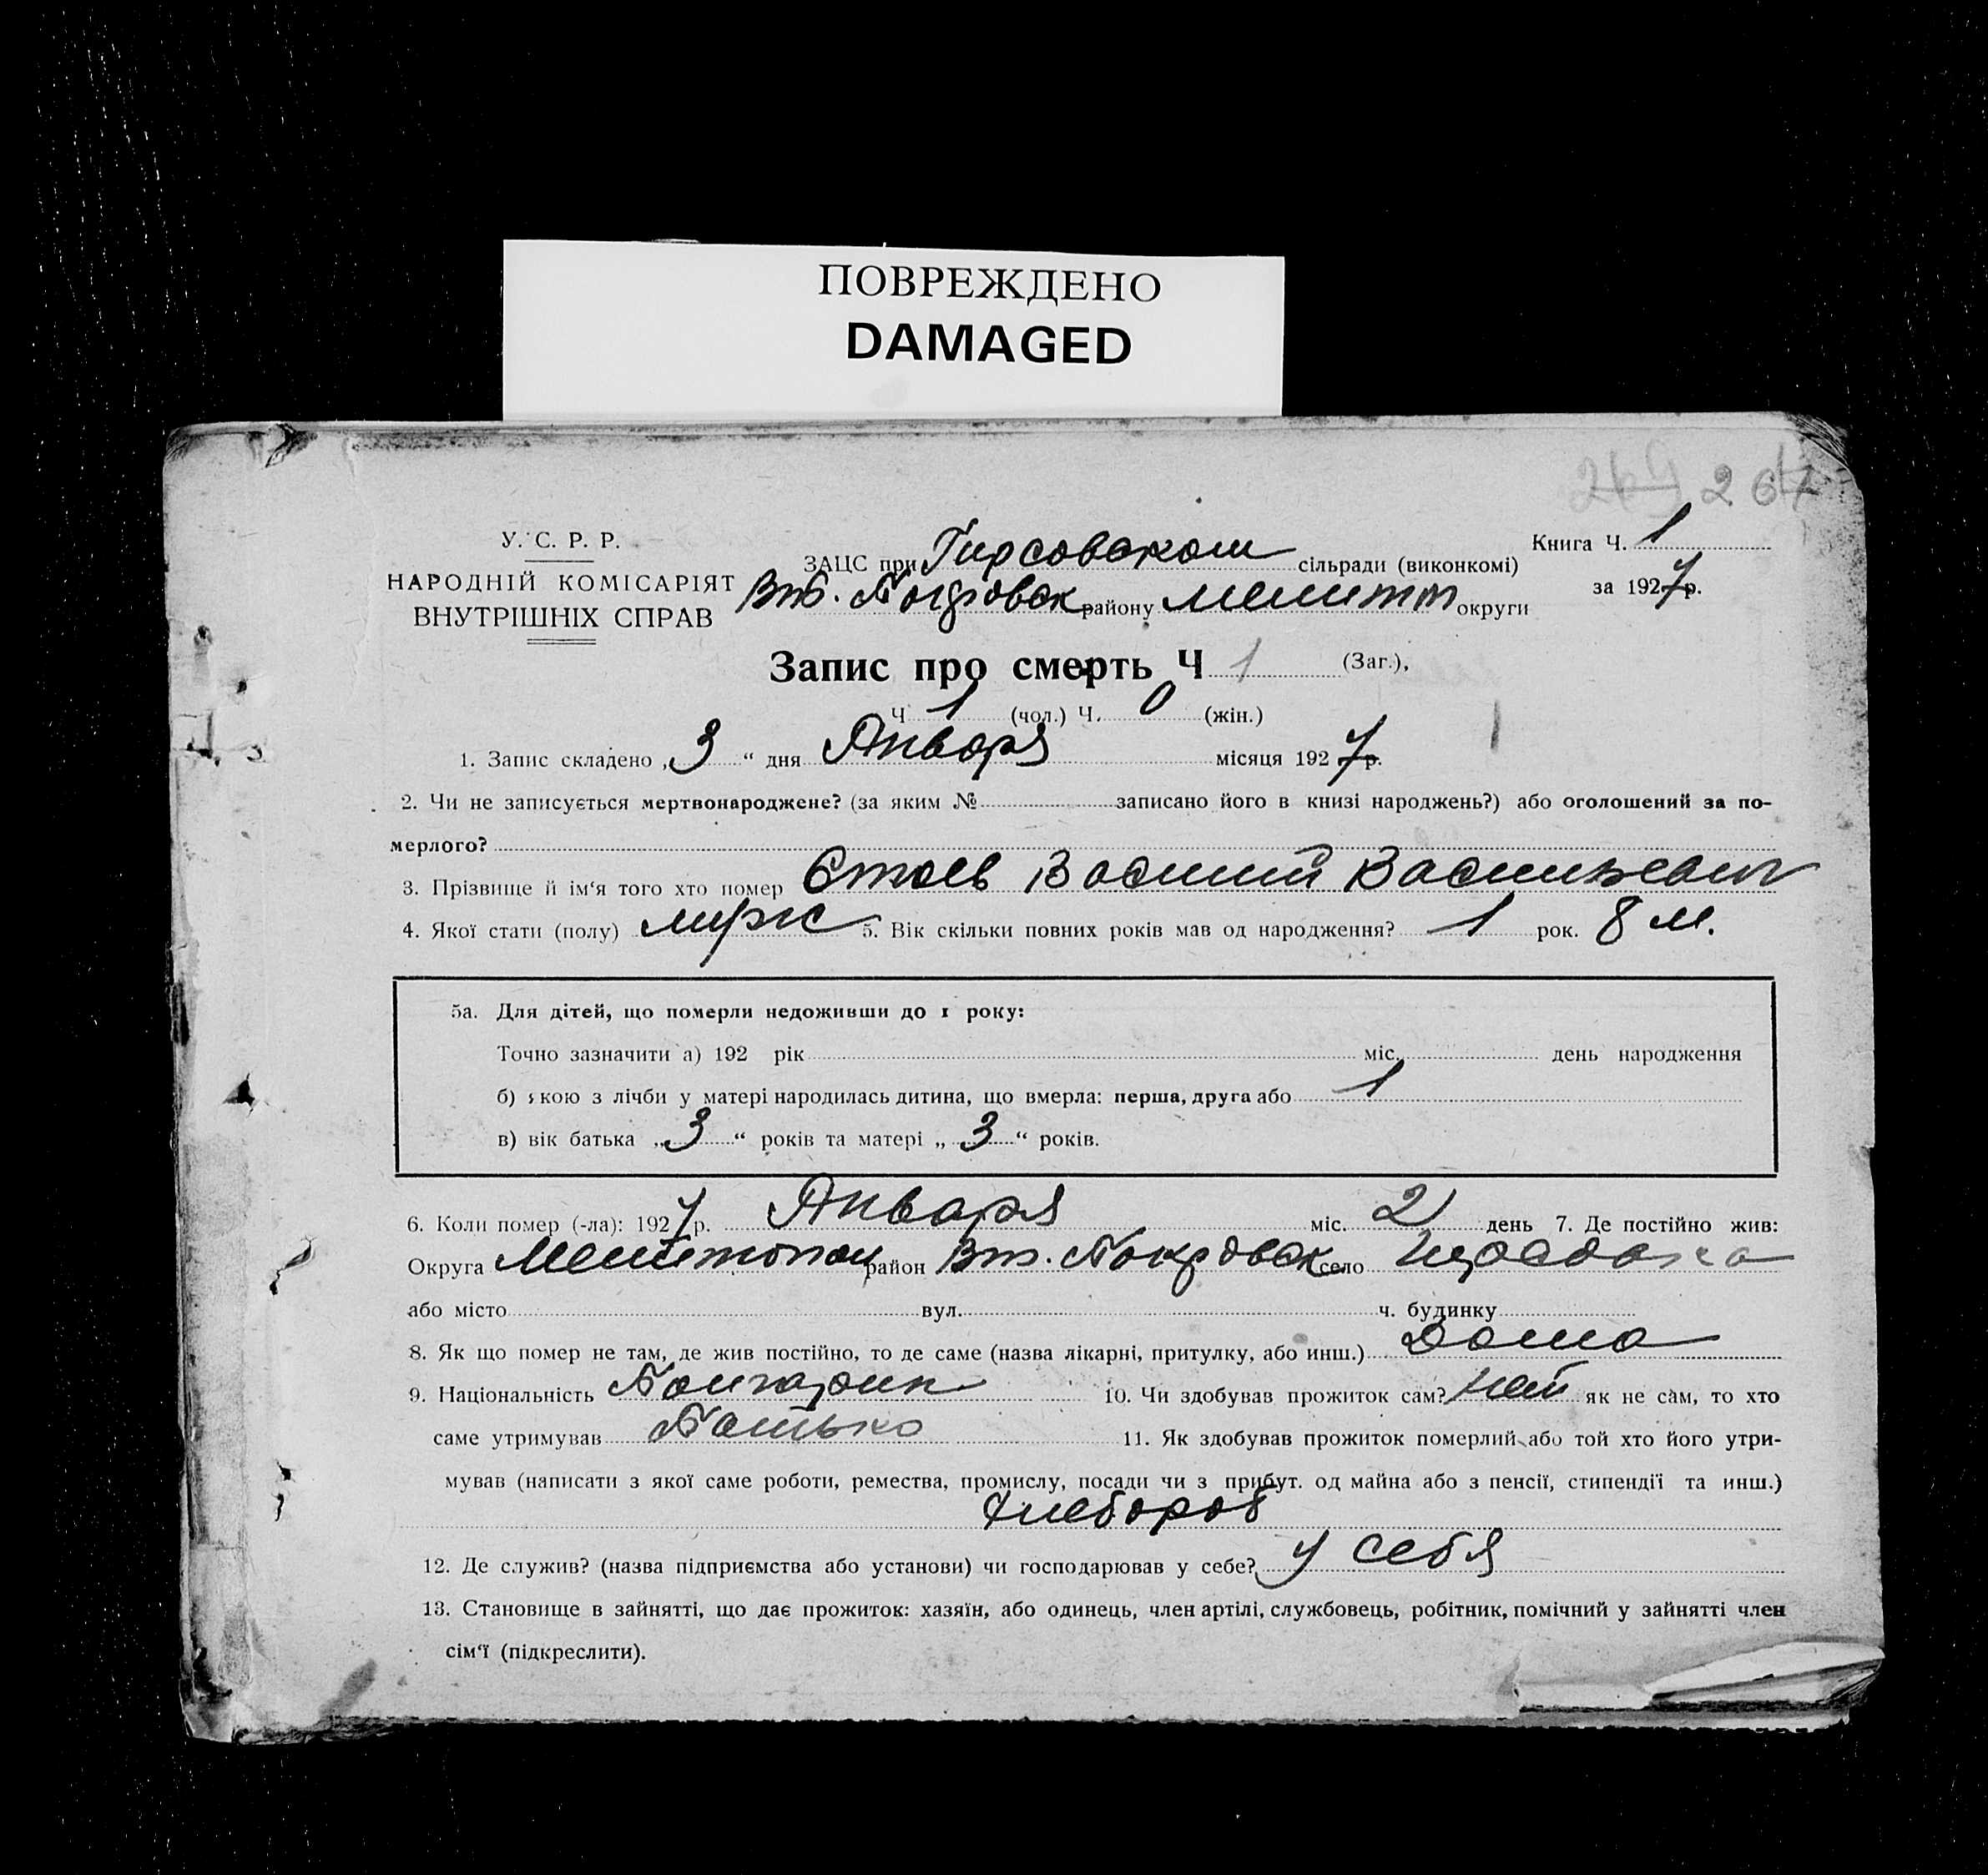 ПОВРЕЖДЕНО
DAMAGED
264 267
У. С. Р. Р.
НАРОДНІЙ КОМІСАРІЯТ
ВНУТРІШНІХ СПРАВ
ЗАЦС при Гирсовском сільради (виконкомі)
Втб. Покровск району Мелитоп округи
Книга Ч. 1
за 1927 р.
Запис про смерть Ч 1 (Заг.),
Ч 1 (чол.) Ч. 0 (жін.)
1. Запис складено „ 3 “ дня Января місяця 1927 р.
2. Чи не записується мертвонароджене? (за яким № записано його в книзі народжень?) або оголошений за по-
мерлого?
3. Прізвище й ім'я того хто помер Стоев Василий Васильевич
4. Якої стати (полу) мужс 5. Вік скільки повних років мав од народження? 1 рок. 8 м.
5а. Для дітей, що померли недоживши до 1 року:
Точно зазначити а) 192 рік міс. день народження
б) якою з лічби у матері народилась дитина, що вмерла: перша, друга або 1
в) вік батька „ 3 “ років та матері „ 3 “ років.
6. Коли помер (-ла): 1927 р. Января міс. 2 день 7. Де постійно жив:
Округа Мелитопол район Вт. Покровск село
або місто вул. ч. будинку
8. Як що помер не там, де жив постійно, то де саме (назва лікарні, притулку, або инш.) Дома
9. Національність Болгарин 10. Чи здобував прожиток сам? Ней як не сам, то хто
саме утримував Батько 11. Як здобував прожиток померлий або той хто його утри-
мував (написати з якої саме роботи, ремества, промислу, посади чи з прибут. од майна або з пенсії, стипендії та инш.)
Хлебороб
12. Де служив? (назва підприємства або установи) чи господарював у себе? у себя
13. Становище в зайнятті, що дає прожиток: хазяїн, або одинець, член артілі, службовець, робітник, помічний у зайнятті член
сім'ї (підкреслити).